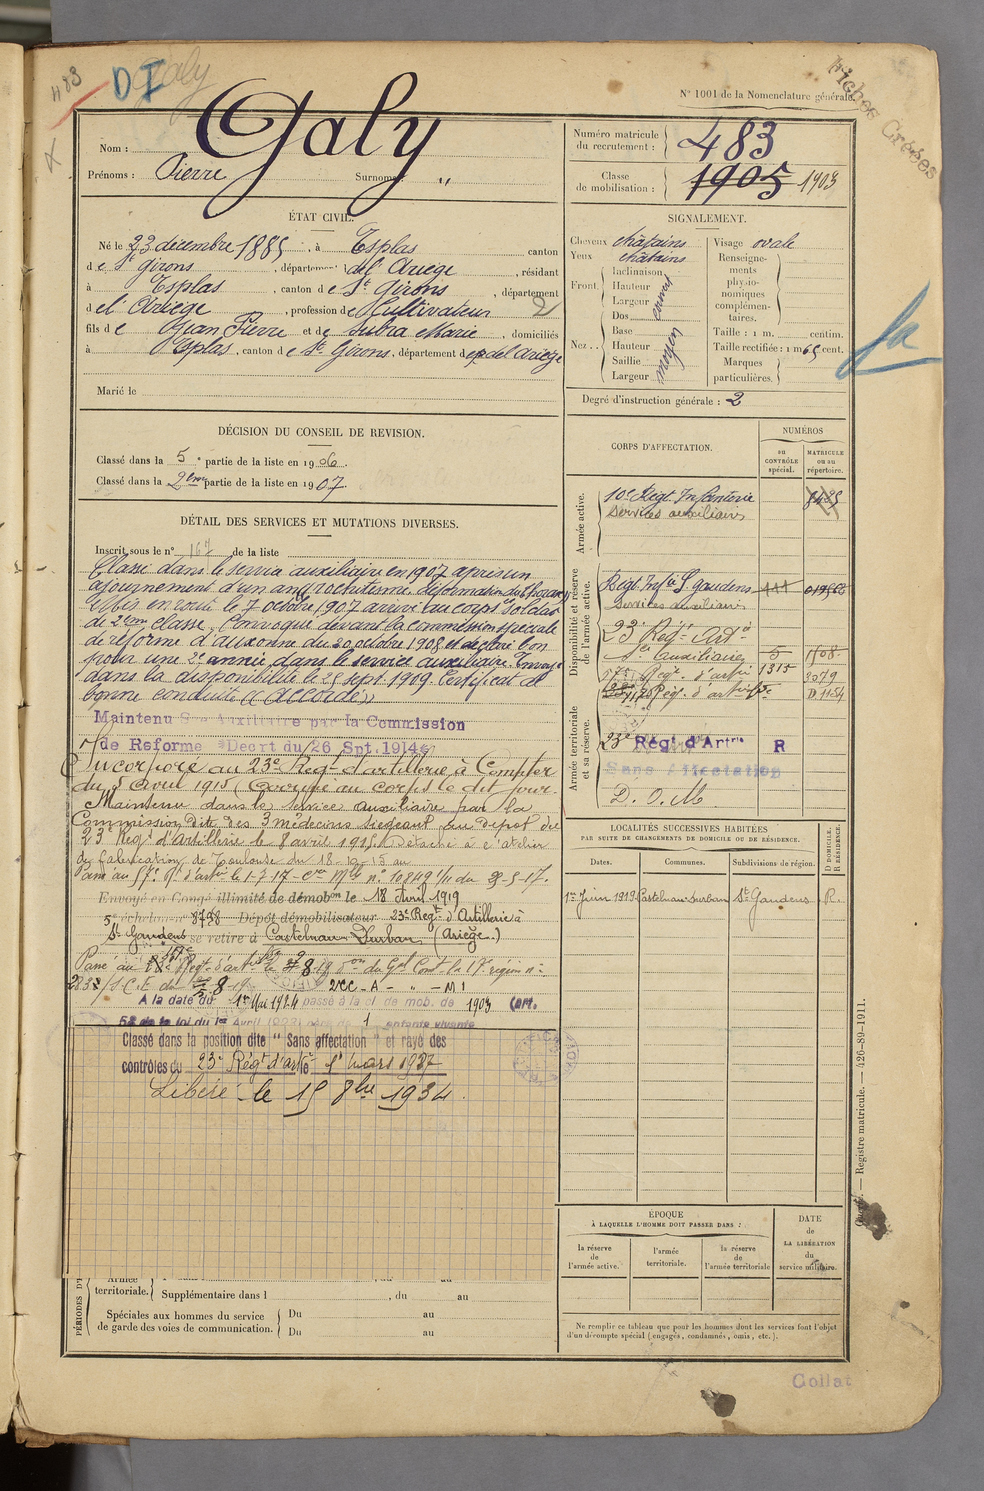 483
DI
Galy
Fiches Créées
N° 1001 de la Nomenclature générale.
Nom : Galy
Prénoms : Pierre Surnoms : "
Numéro matricule du recrutement : 483
Classe de mobilisation : 1905 1903
ÉTAT CIVIL.
Né le 23 décembre 1885, à Esplas canton
de St Girons, département de l'Ariège, résidant
à Esplas, canton de St Girons, département
de l'Ariège, profession de Cultivateur 2
fils de Jean Pierre et de Subra Marie, domiciliés
à Esplas, canton de St Girons, département de l'Ariège
Marié le
SIGNALEMENT.
Cheveux châtains
Yeux châtains
Front. Inclinaison
Hauteur
Largeur
Nez .. Dos
Base
Hauteur moyen
Saillie
Largeur
Visage ovale
Renseignements physionomiques complémentaires.
Taille : 1 m. centim.
Taille rectifiée : 1 m 65 cent.
Marques particulières.
Degré d'instruction générale : 2
DÉCISION DU CONSEIL DE REVISION.
Classé dans la 5e partie de la liste en 1906.
Classé dans la 2ème partie de la liste en 1907.
DÉTAIL DES SERVICES ET MUTATIONS DIVERSES.
Inscrit sous le n° 167 de la liste
Classé dans le service auxiliaire en 1907 après un
ajournement d'un an, déformation du thorax
Mis en route le 7 octobre 1907 arrivé au corps soldat
de 2ème classe. Convoqué devant la commission spéciale
de réforme d'Auxonne du 20 octobre 1908 et déclaré bon
pour une 2e année dans le service auxiliaire. Envoyé
dans la disponibilité le 25 sept. 1909. Certificat de
bonne conduite "Accordé"
Maintenu Sce Auxiliaire par la Commission
de Reforme Decrt du 26 Spt. 1914
Incorporé au 23e Régt d'artillerie à Compter
du 5 Avril 1915, Arrivé au corps le dit jour.
Maintenu dans le service auxiliaire par la
Commission dite des 3 médecins siégeant au dépot du
23e Regt d'Artillerie le 8 avril 1915. Détaché à l'atelier
de fabrication de Toulouse du 18-10-15 au
Passé au 57e Rt d'artie le 1-7-17
Envoyé en Congé illimité de démobon le 18 Avril 1919
5e échelon n° 8798 Dépôt démobilisateur 23e Regt d'Artillerie à
St Gaudens se retire à Castelnau-Durban (Ariège.)
A la date du 1er Mai 1924 passé à la cl de mob. de 1903 (art.
58 de la loi du 1er Avril 1923) père de 1 enfants vivants
Classé dans la position dite " Sans affectation " et rayé des
contrôles du 23e Régt d'artie le 1er mars 1927
Libéré le 15 8bre 1934.
CORPS D'AFFECTATION.
NUMÉROS
au CONTRÔLE spécial.
MATRICULE ou au répertoire.
Armée active.
10e Régt Infanterie
Services auxiliaires
Disponibilité et réserve de l'armée active.
Régt Infie St gaudens
Services auxiliaires
23e Régt Artie
Sces auxiliaires
Armée territoriale et sa réserve.
23e Régt d'Artrie R
Sans Affectation
D. O. M.
LOCALITÉS SUCCESSIVES HABITÉES
PAR SUITE DE CHANGEMENTS DE DOMICILE OU DE RÉSIDENCE.
Dates. Communes. Subdivisions de région. D. DOMICILE. R. RÉSIDENCE.
1er Juin 1919 Castelnau-Durban St Gaudens R.
ÉPOQUE
À LAQUELLE L'HOMME DOIT PASSER DANS :
la réserve de l'armée active.
l'armée territoriale.
la réserve de l'armée territoriale
DATE de LA LIBÉRATION du service militaire.
PÉRIODES D'
Armée territoriale.
Supplémentaire dans l , du au
Spéciales aux hommes du service de garde des voies de communication.
Du au
Du au
Ne remplir ce tableau que pour les hommes dont les services font l'objet
d'un décompte spécial (engagés, condamnés, omis, etc.).
Registre matricule. — 426-89-1911.
Collat